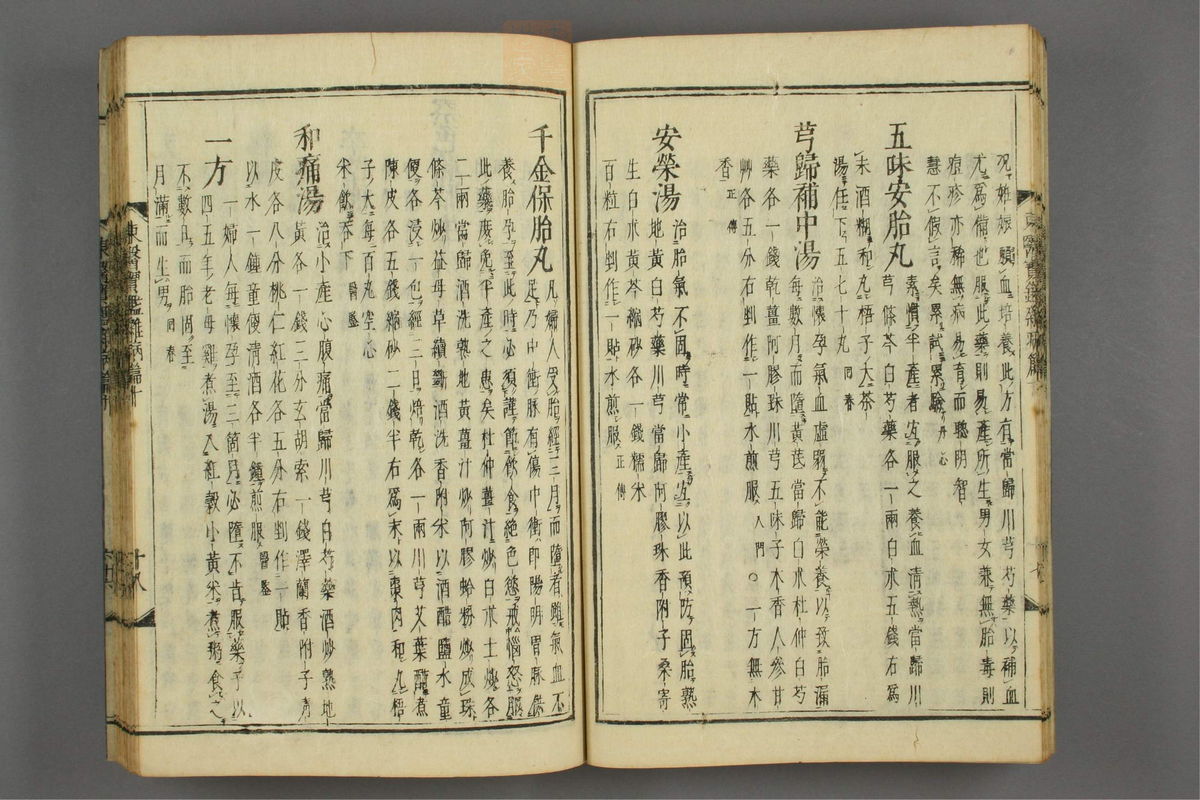 況妊娠賴血培養此方有當歸川芎芍藥以補血
尤爲備也服此藥則易產所生男女兼無胎毒則
痘疹亦稀無病易育而聰明智
慧不假言矣累試累驗丹心
五味安胎丸 素慣半產者宜服之養血淸熱當歸川
芎條芩白芍藥各一兩白朮五錢右爲
末酒糊和丸梧子大茶
湯任下五七十丸回春
芎歸補中湯 治懷孕氣血虛弱不能榮養以致胎漏
每數月而墮黃芪當歸白朮杜仲白芍
藥各一錢乾薑阿膠珠川芎五味子木香人參甘
艸各五分右剉作一貼水煎服入門○一方無木
香正傳
安榮湯 治胎氣不固時常小產宜以此預防固胎熟
地黃白芍藥川芎當歸阿膠珠香附子桑寄
生白朮黃芩縮砂各一錢糯米
百粒右剉作一貼水煎服正傳
千金保胎丸 凡婦人受胎經三月而墮者雖氣血不
足乃中衝脉有傷中衝卽陽明胃脉供
養胎孕至此時必須謹節飮食絶色慾戒惱怒服
此藥庶免半產之患矣杜仲薑汁炒白朮土炒各
二兩當歸酒洗熟地黃薑汁炒阿膠蛤粉炒成珠
條芩炒益母草續斷酒洗香附米以酒醋鹽水童
便各浸一包經三日焙乾各一兩川芎艾葉醋煮
陳皮各五錢縮砂二錢半右爲末以棗肉和丸梧
子大每百丸空心
米飮吞下醫鑑
和痛湯 治小產心腹痛當歸川芎白芍藥酒炒熟地
黃各一錢三分玄胡索一錢澤蘭香附子靑
皮各八分桃仁紅花各五分右剉作一貼
以水一鍾童便淸酒各半鍾煎服醫鑑
一方 一婦人每懷孕至三箇月必墮不肯服藥予以
四五年老母雞煮湯入紅穀小黃米煮粥食之
不數且而胎固至
月滿而生男回春
東醫寶鑑雜病篇十
十八